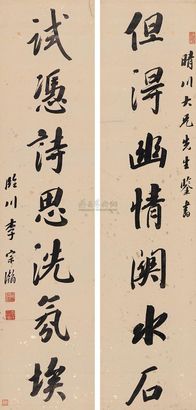 晴川大兄先生鉴書
但得幽情関水石
試憑詩思洗氛埃
臨川李宗瀚